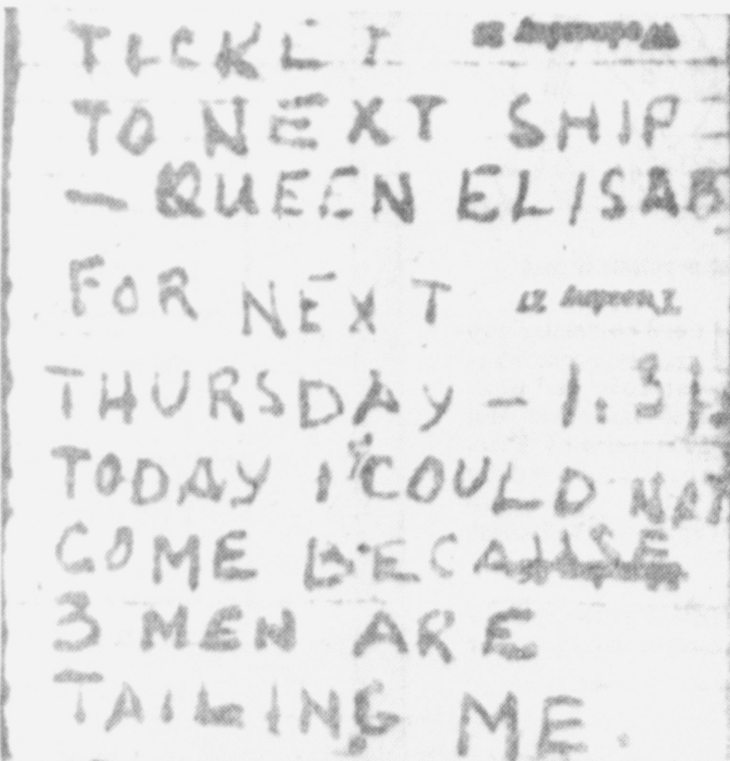 TICKET
TO NEXT SHIP
— QUEEN ELISAB
FOR NEXT
THURSDAY – 1:3
TODAY I COULD NOT
COME BECAUSE
3 MEN ARE
TAILING ME.